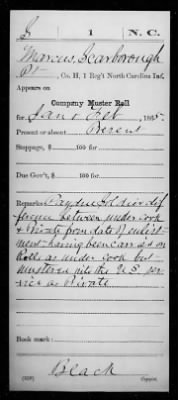 S | 1 | N.C.
Marcus, Scarborough
Pt., Co. H, 1 Reg't North Carolina Inf.
Appears on
Company Muster Roll
for Jan & Feb, 1865.
Present or absent Present
Stoppage, $ 100 for
Due Gov't, $ 100 for
Remarks: Pay due Soldier dif-
ference between under cook
& Private from date of enlist-
ment having been carried on
Rolls as under cook but
mustered into the U.S. ser-
vice as Private
Book mark:
Beach
(358)
Copyist.